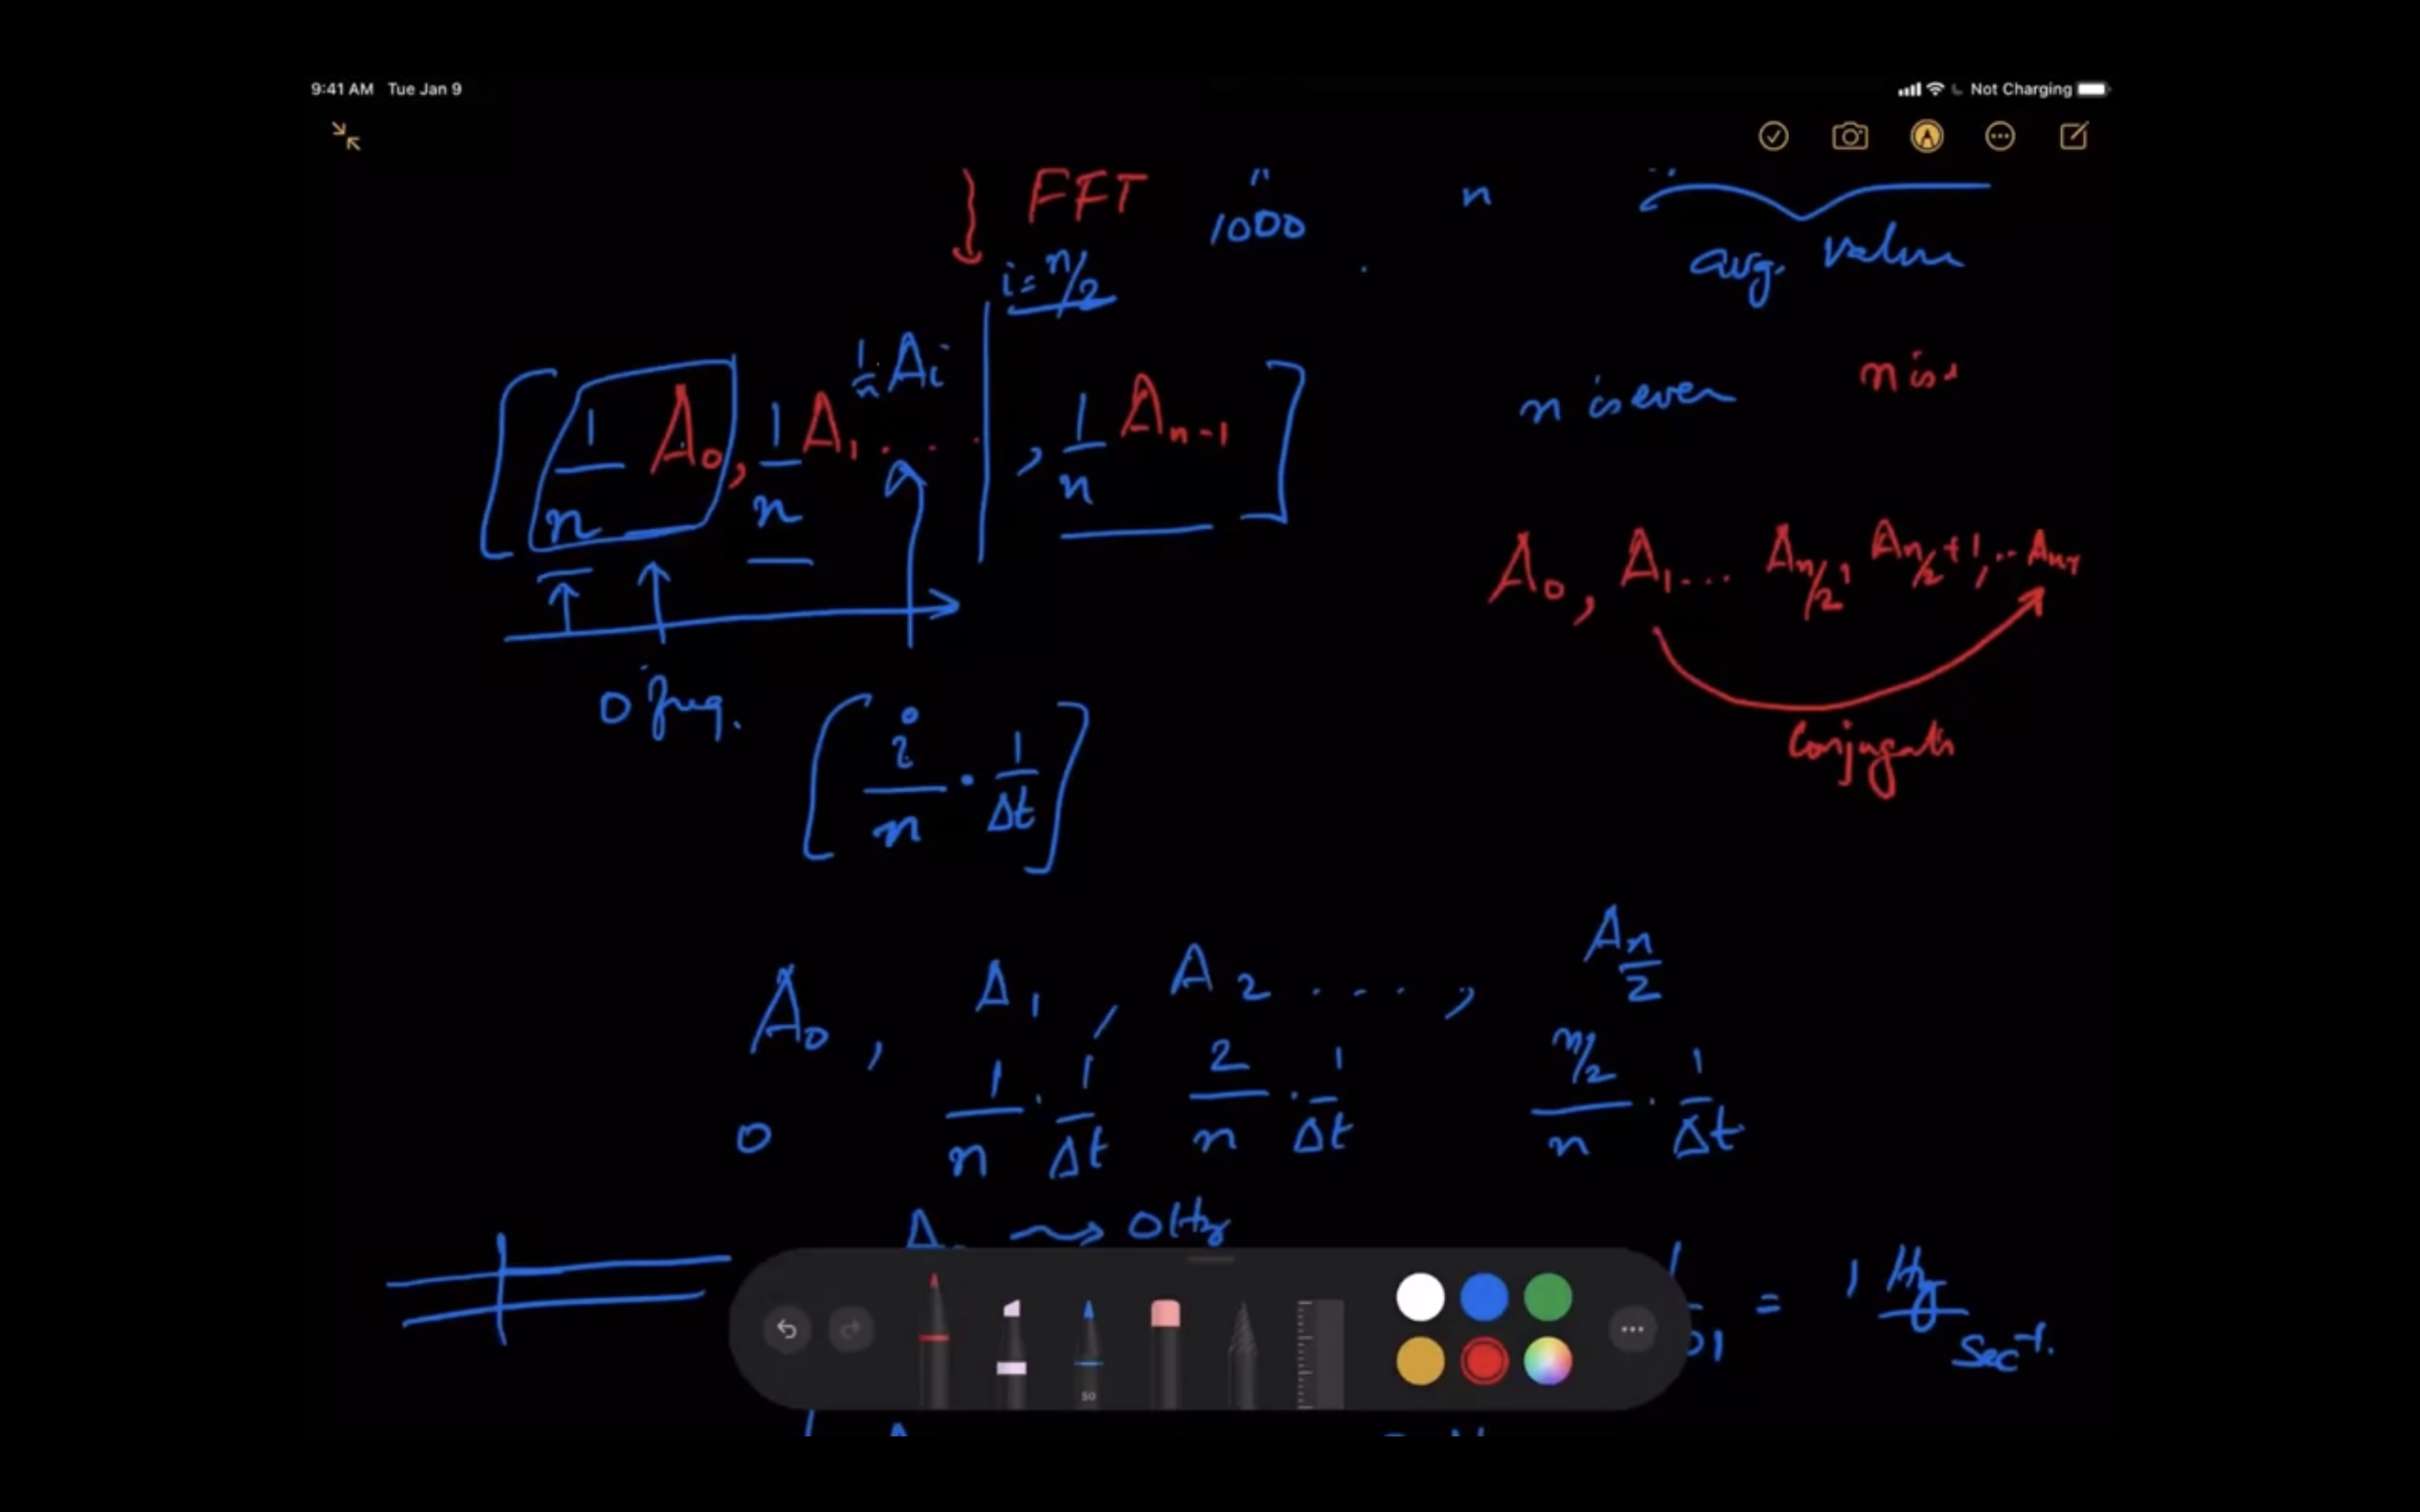 9:41 AM Tue Jan 9 Not Charging
FFT 1000 n
avg. value
i = n/2
[ 1/n A₀, 1/n A₁ .... 1/n Aᵢ , 1/n Aₙ₋₁ ]
n is even n is
A₀, A₁... A n/2, A n/2+1, ..
0 freq.
Conjugate
[ i/n · 1/Δt ]
A₀, A₁, A₂ ...., A n/2
0 1/n · 1/Δt 2/n · 1/Δt n/2/n · 1/Δt
0 Hz
= 1 Hz
sec⁻¹.
50